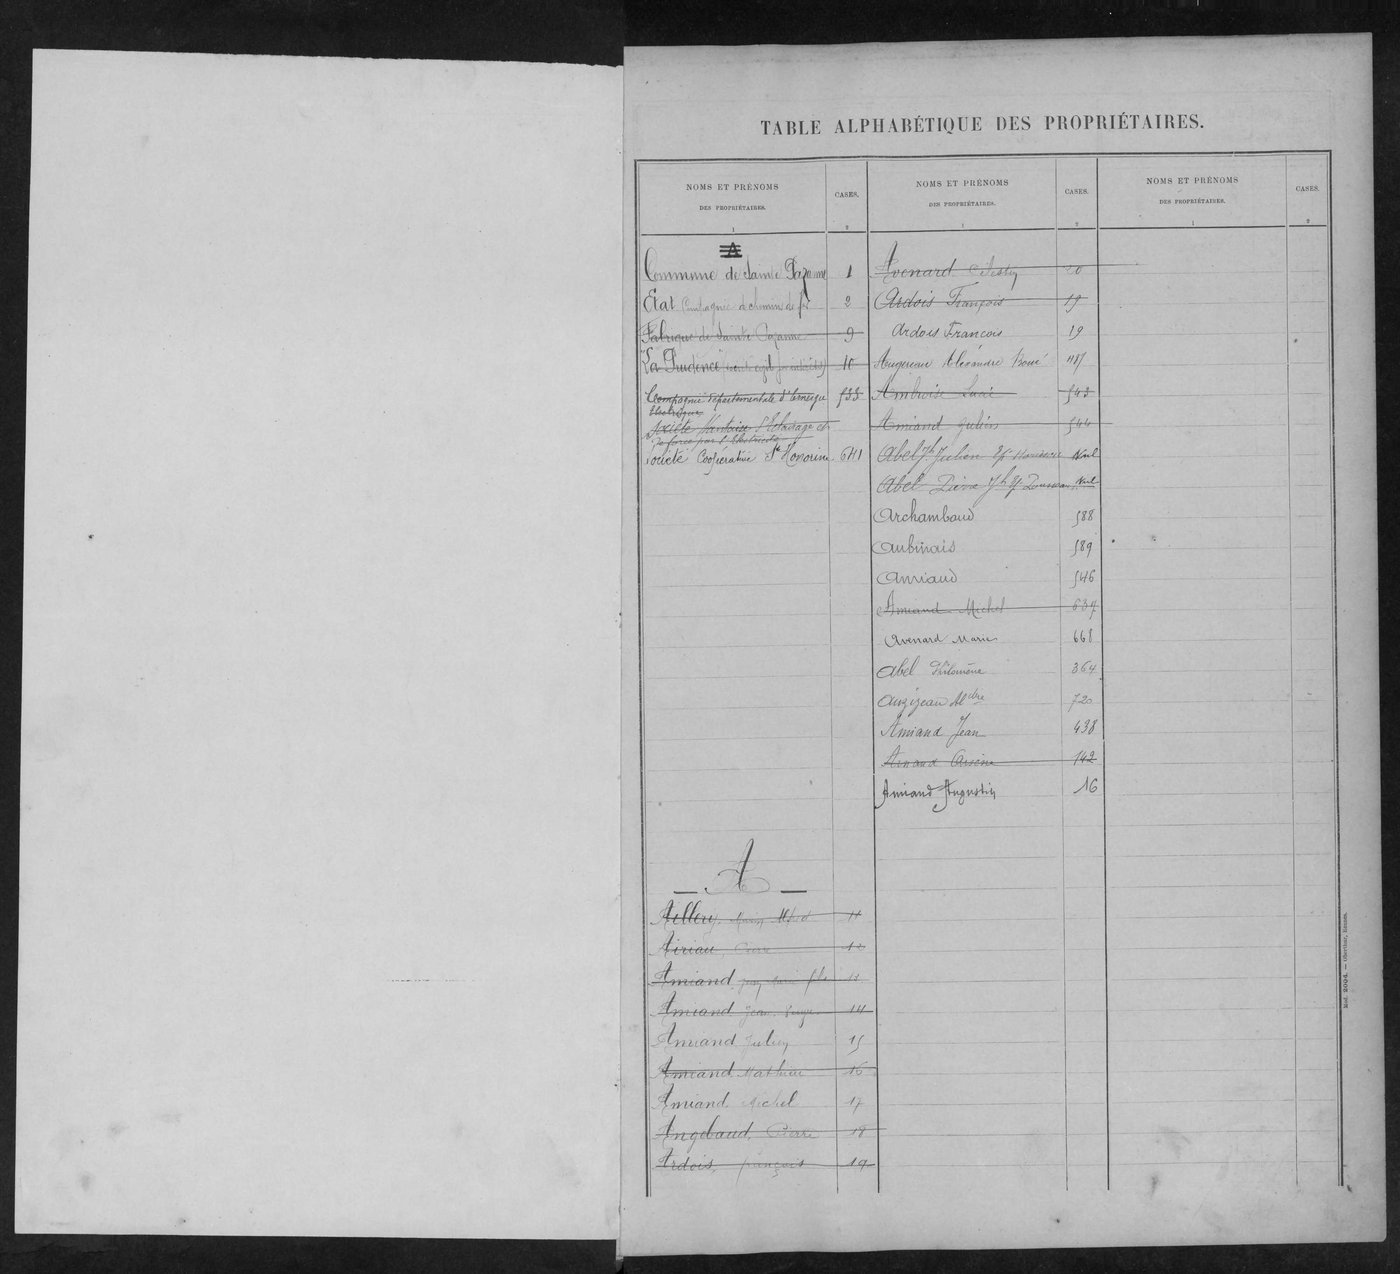 TABLE ALPHABÉTIQUE DES PROPRIÉTAIRES.
NOMS ET PRÉNOMS
DES PROPRIÉTAIRES.
1
CASES.
2
A
Commune de Sainte Pazanne 1
Etat Compagnie de chemin de fer 2
Fabrique de Sainte Pazanne 9
La Prudence 10
Compagnie départementale d'énergie 533
électrique
Société Nantaise d'Eclairage et
de force par l'électricité
Société Coopérative Ste Honorine 641
A
Aillery Alfred 11
Airiau Pierre 12
Amiand Jean Marie fils 13
Amiand Jean 14
Amiand Julien 15
Amiand Mathieu 16
Amiand Michel 17
Angebaud, Pierre 18
Ardois, françois 19
NOMS ET PRÉNOMS
DES PROPRIÉTAIRES.
1
CASES.
2
Avenard Célestin 20
Ardois François 19
Ardois Francois 19
Augereau Alexandre 487
Ambroise Lucie 543
Amiand Julien 544
Abel Jh Julien Nul
Abel Pierre Jh Nul
Archambaud 588
Aubinais 589
Amiaud 546
Amiand Michel 637
Avenard Marie 668
Abel Philomène 364
Auzijeau 720
Amiand Jean 438
Arnaud Arsène 142
Amiand Augustin 16
NOMS ET PRÉNOMS
DES PROPRIÉTAIRES.
1
CASES.
2
Mod. 2094. — Oberthur, Rennes.